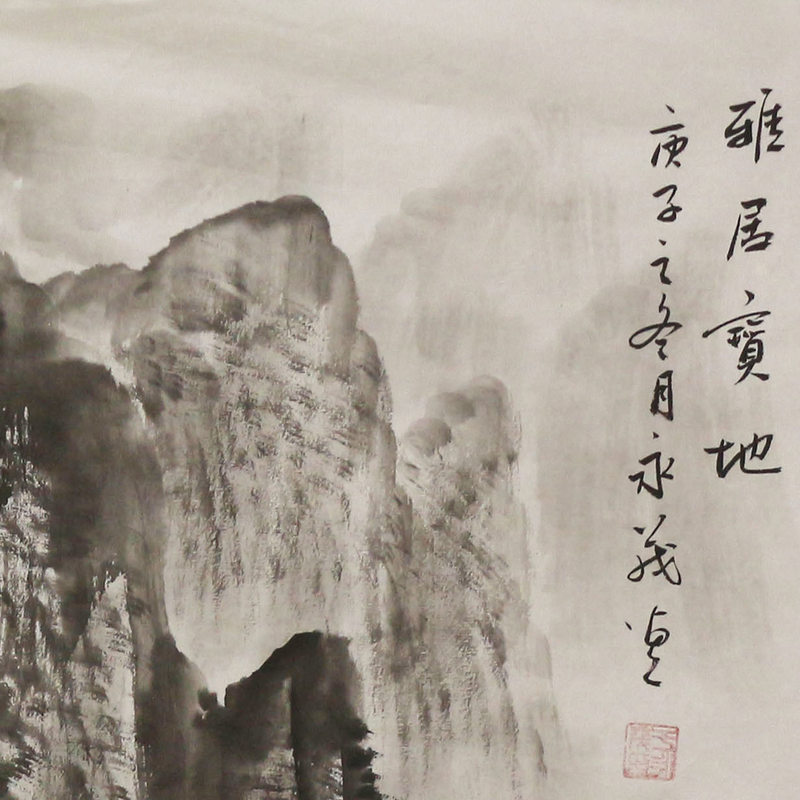 雅居寶地
庚子之冬月永義畫